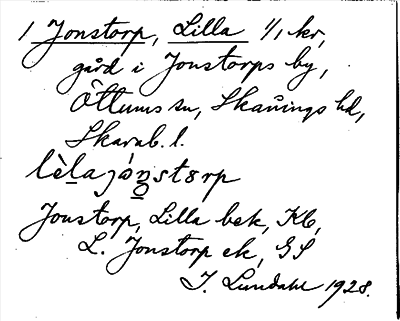 1 Jonstorp, Lilla 1/1 kr,
gård i Jonstorps by,
Öttums sn, Skånings hd,
Skarab. l.
lèlajónstɵrp
Jonstorp, Lilla bek, Kb,
L. Jonstorp ek, GS
I. Lundahl 1928.